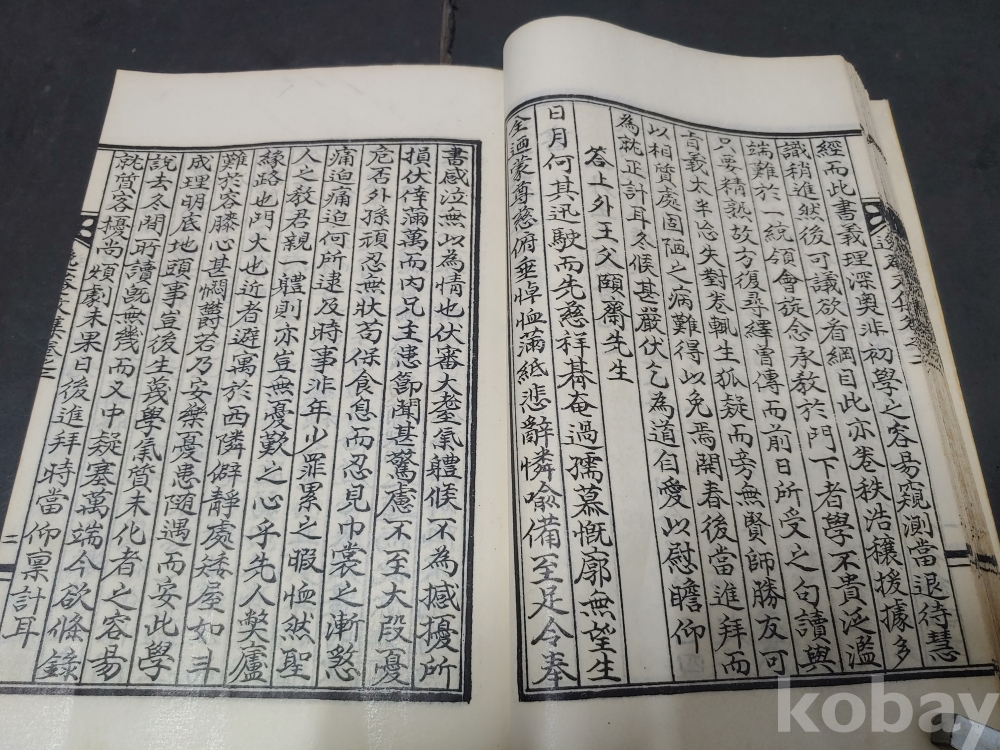 經而此書義理深奧非初學之容易窺測當退待慧
識稍進然後可議欲看綱目此亦卷秩浩穰援據多
端難於一統領會旋念承教於門下者學不貴泛濫
只要精熟故方復尋繹曾傳而前日所受之句讀與
旨義太半忘失對卷輒生狐疑而旁無賢師勝友可
以相質處固陋之病難得以免焉開春後當進拜而
為就正計耳冬候甚嚴伏乞為道自愛以慰瞻仰
答上外王父頤齋先生
日月何其迅駛而先慈祥朞奄過孺慕慨廓無望生
全迺蒙尊慈俯垂悼恤滿紙悲辭憐喩備至足令奉
書感泣無以為情也伏審大耋氣體候不為撼擾所
損伏倖滿萬而內兄主患節聞甚驚慮不至大段憂
危否外孫頑忍無狀苟保食息而忍見巾裳之漸煞
痛迫痛迫何所逮及時事非年少罪累之暇恤然聖
人之教君親一體則亦豈無憂歎之心乎先人獘廬
緣路也門大也近者避寓於西隣僻靜處矮屋如斗
難於容膝心甚悶欝若乃安樂憂患随遇而安此學
成理明底地頭事豈後生蔑學氣質未化者之容易
說去冬間所讀旣無幾而又中疑塞萬端今欲條錄
就質客擾尚煩劇未果日後進拜時當仰稟計耳
二
kobay